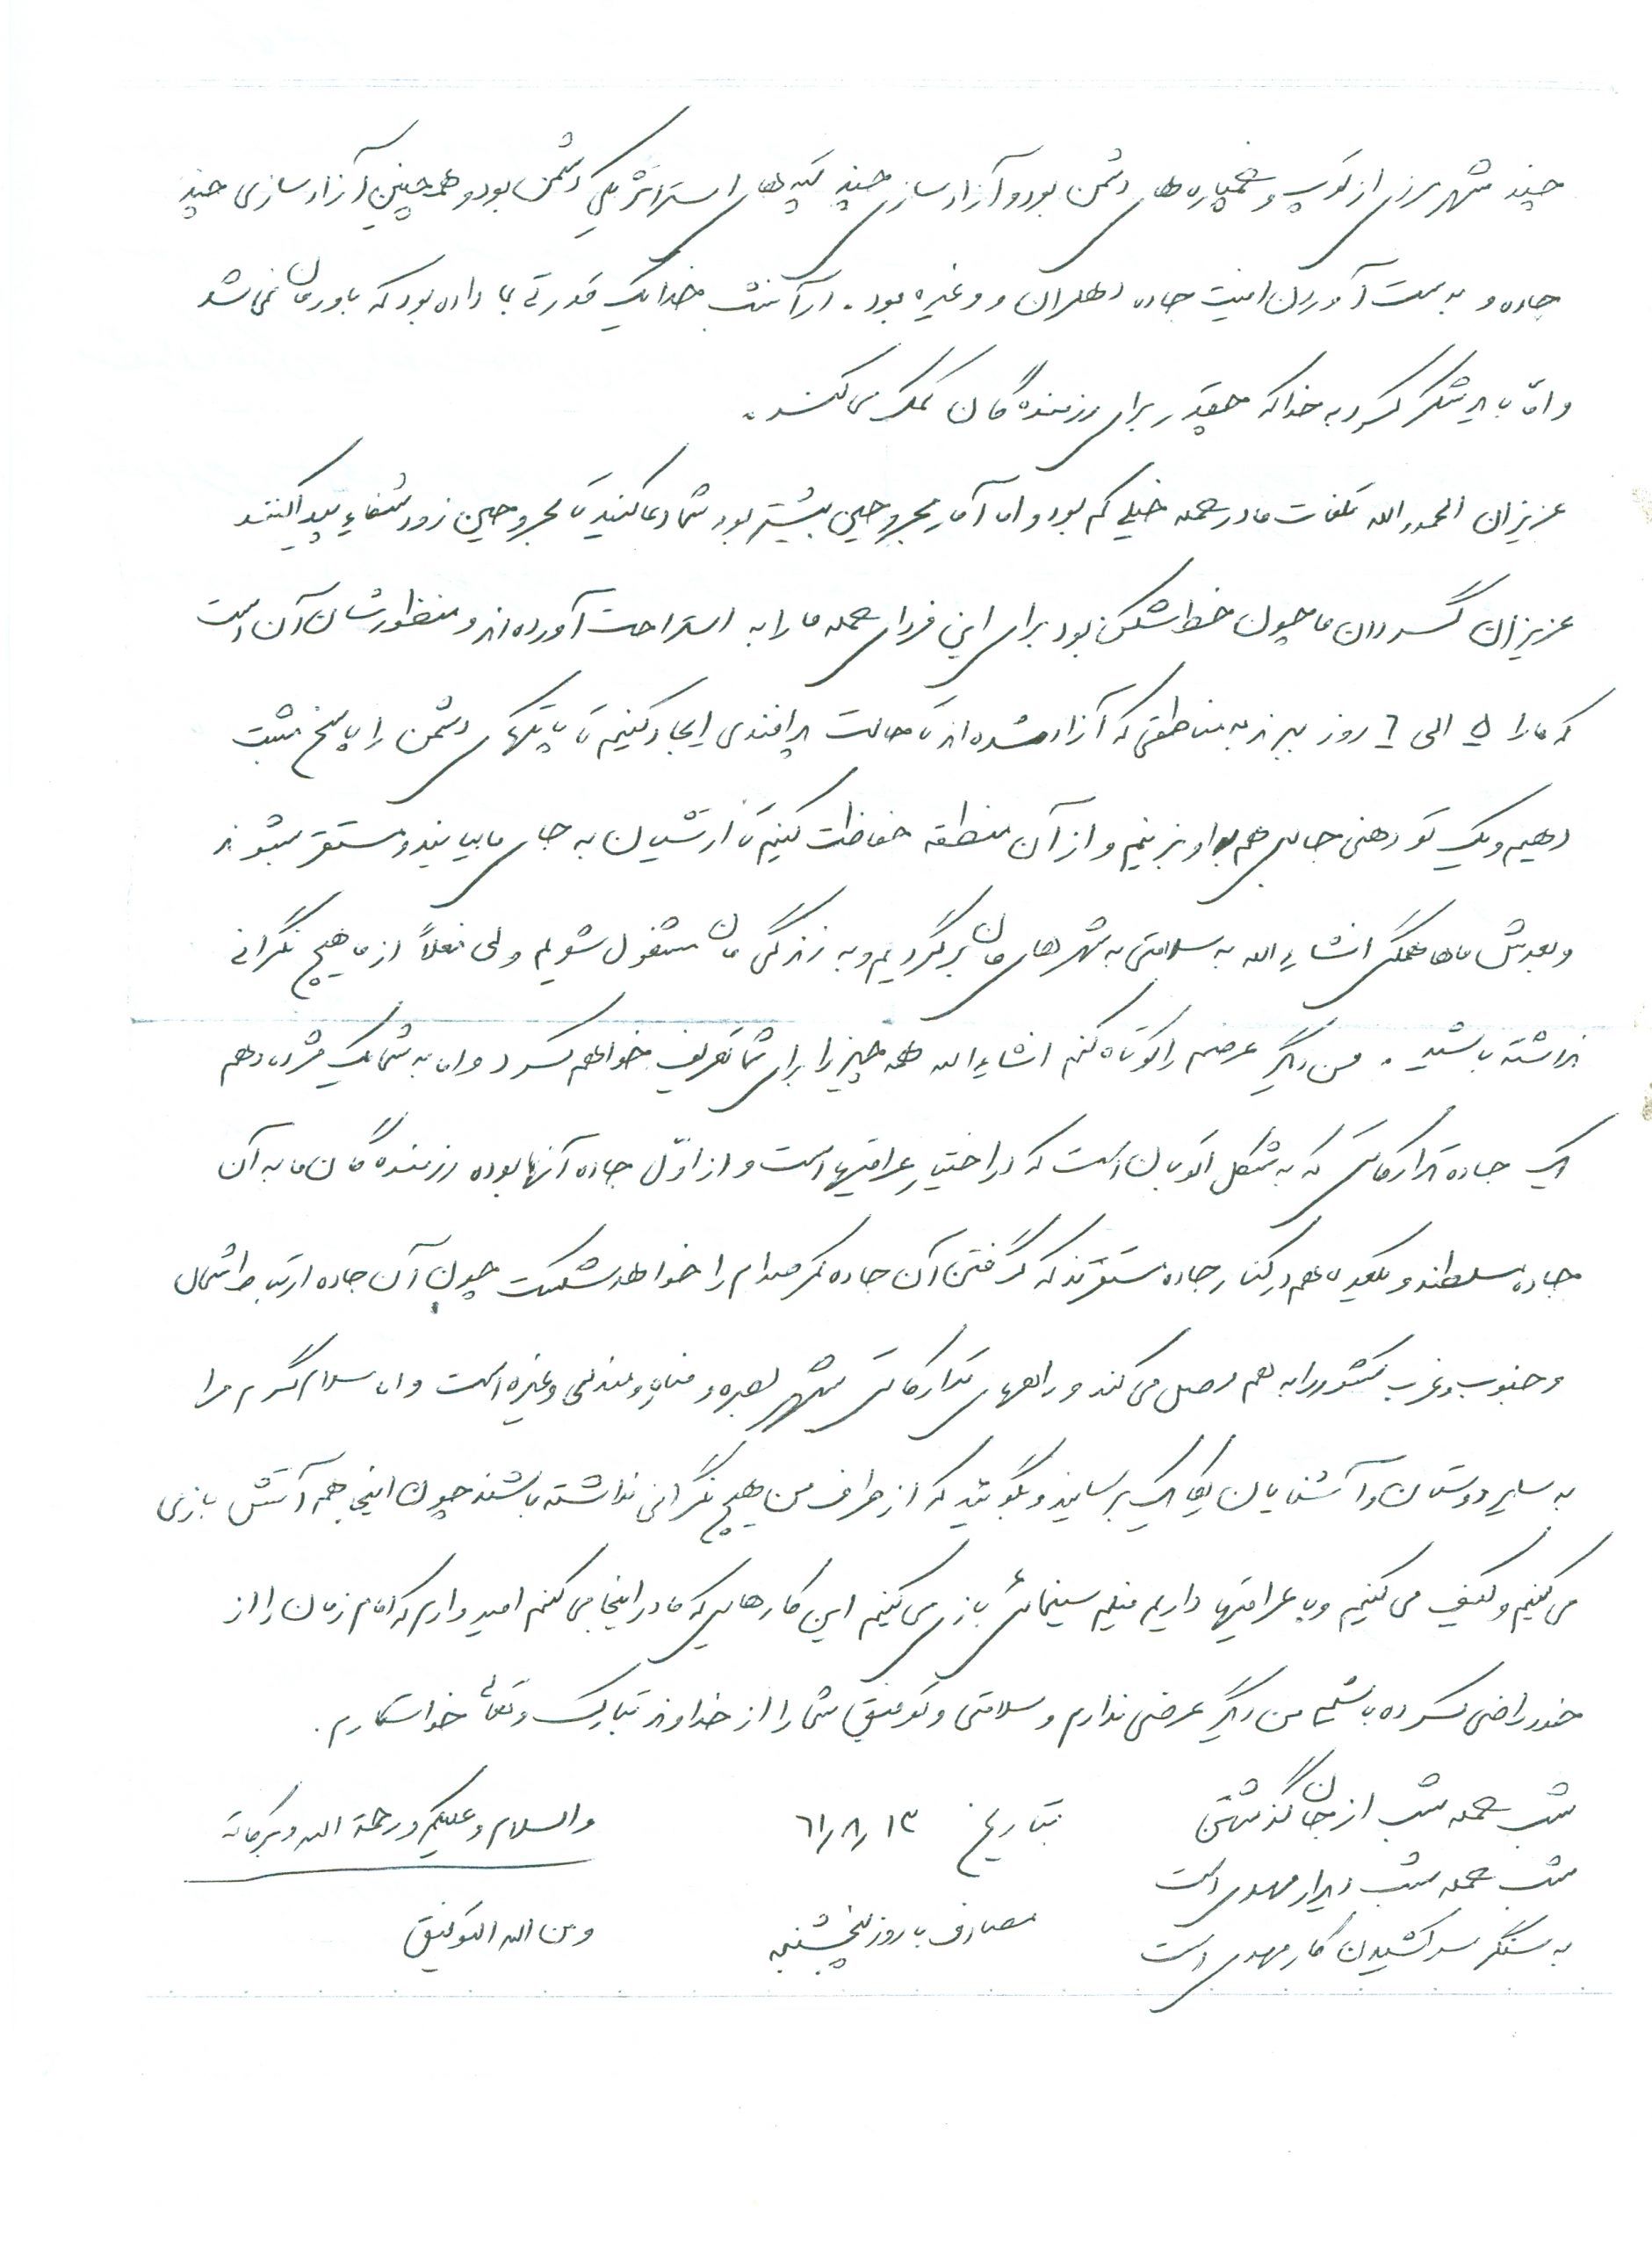 چند شهر مرزی از توپ و خمپاره های دشمن بود و آزادسازی چند تپه های استراتژیکی دشمن بود و همچنین آزادسازی چند
جاده و بدست آوردن امنیت جاده دهلران و و غیره بود. در آن شب خدا یک قدرتی بما داده بود که باورمان نمی شد
و اما باید شکر کرد به خدا که چقدر برای رزمندگان کمک می کند.
عزیزان الحمدالله تلفات ما در حمله خیلی کم بود و اما آمار مجروحین بیشتر بود شما دعا کنید تا مجروحین زود شفاء پیدا کنند
عزیزان گردان ما چون خط شکن بود برای این فردای حمله ما را به استراحت آورده اند و منظورشان آن است
که ما را ۵ الی ٦ روز ببرند به مناطقی که آزاد شده اند تا حالت پدافندی ایجاد کنیم تا پاتکهای دشمن را پاسخ مثبت
دهیم و یک تو دهنی جالبی هم به او بزنیم و از آن منطقه حفاظت کنیم تا ارتشیان به جای ما بیایند و مستقر بشوند
و بعدش ماها همگی انشاءالله به سلامتی به شهرهای مان برگردیم و به زندگی مان مشغول شویم ولی فعلاً از ما هیچ نگرانی
نداشته باشید. من دیگر عرضم را کوتاه کنم انشاءالله همه چیز را برای شما تعریف خواهم کرد و اما به شما یک مژده دهم
یک جاده تدارکاتی که به شکل اتوبان است که در اختیار عراقیها است و از اوّل جاده آنها بوده رزمندگان ما به آن
جاده مسلطند و بعید با هم در کنار جاده مستقرند که گرفتن آن جاده کمر صدام را خواهد شکست چون آن جاده ارتباط شمال
و جنوب و غرب کشور را به هم وصل می کند و راههای تدارکاتی شهر بصره و فاو و مندلی و غیره است و اما سلام گرم مرا
به سایر دوستان و آشنایان یکایک برسانید و بگوئید که از طرف من هیچ نگرانی نداشته باشند چون اینجا همه آتش بازی
می کنیم و کیف می کنیم و با عراقیها داریم فیلم سینمائی بازی می کنیم این کارهایی که ما در اینجا می کنیم امیدوارم که امام زمان را از
خود راضی کرده باشیم من دیگر عرضی ندارم و سلامتی و توفیق شما را از خداوند تبارک و تعالی خواستارم.
شب حمله شب از جان گذشتن
شب حمله شب دیدار مهدی است
به سنگر سر کشیدن کار مهدی است
بتاریخ ٦١٫٨٫١٣
مصادف با روز پنجشنبه
والسلام و علیکم و رحمة الله و برکاته
و من الله التوفیق